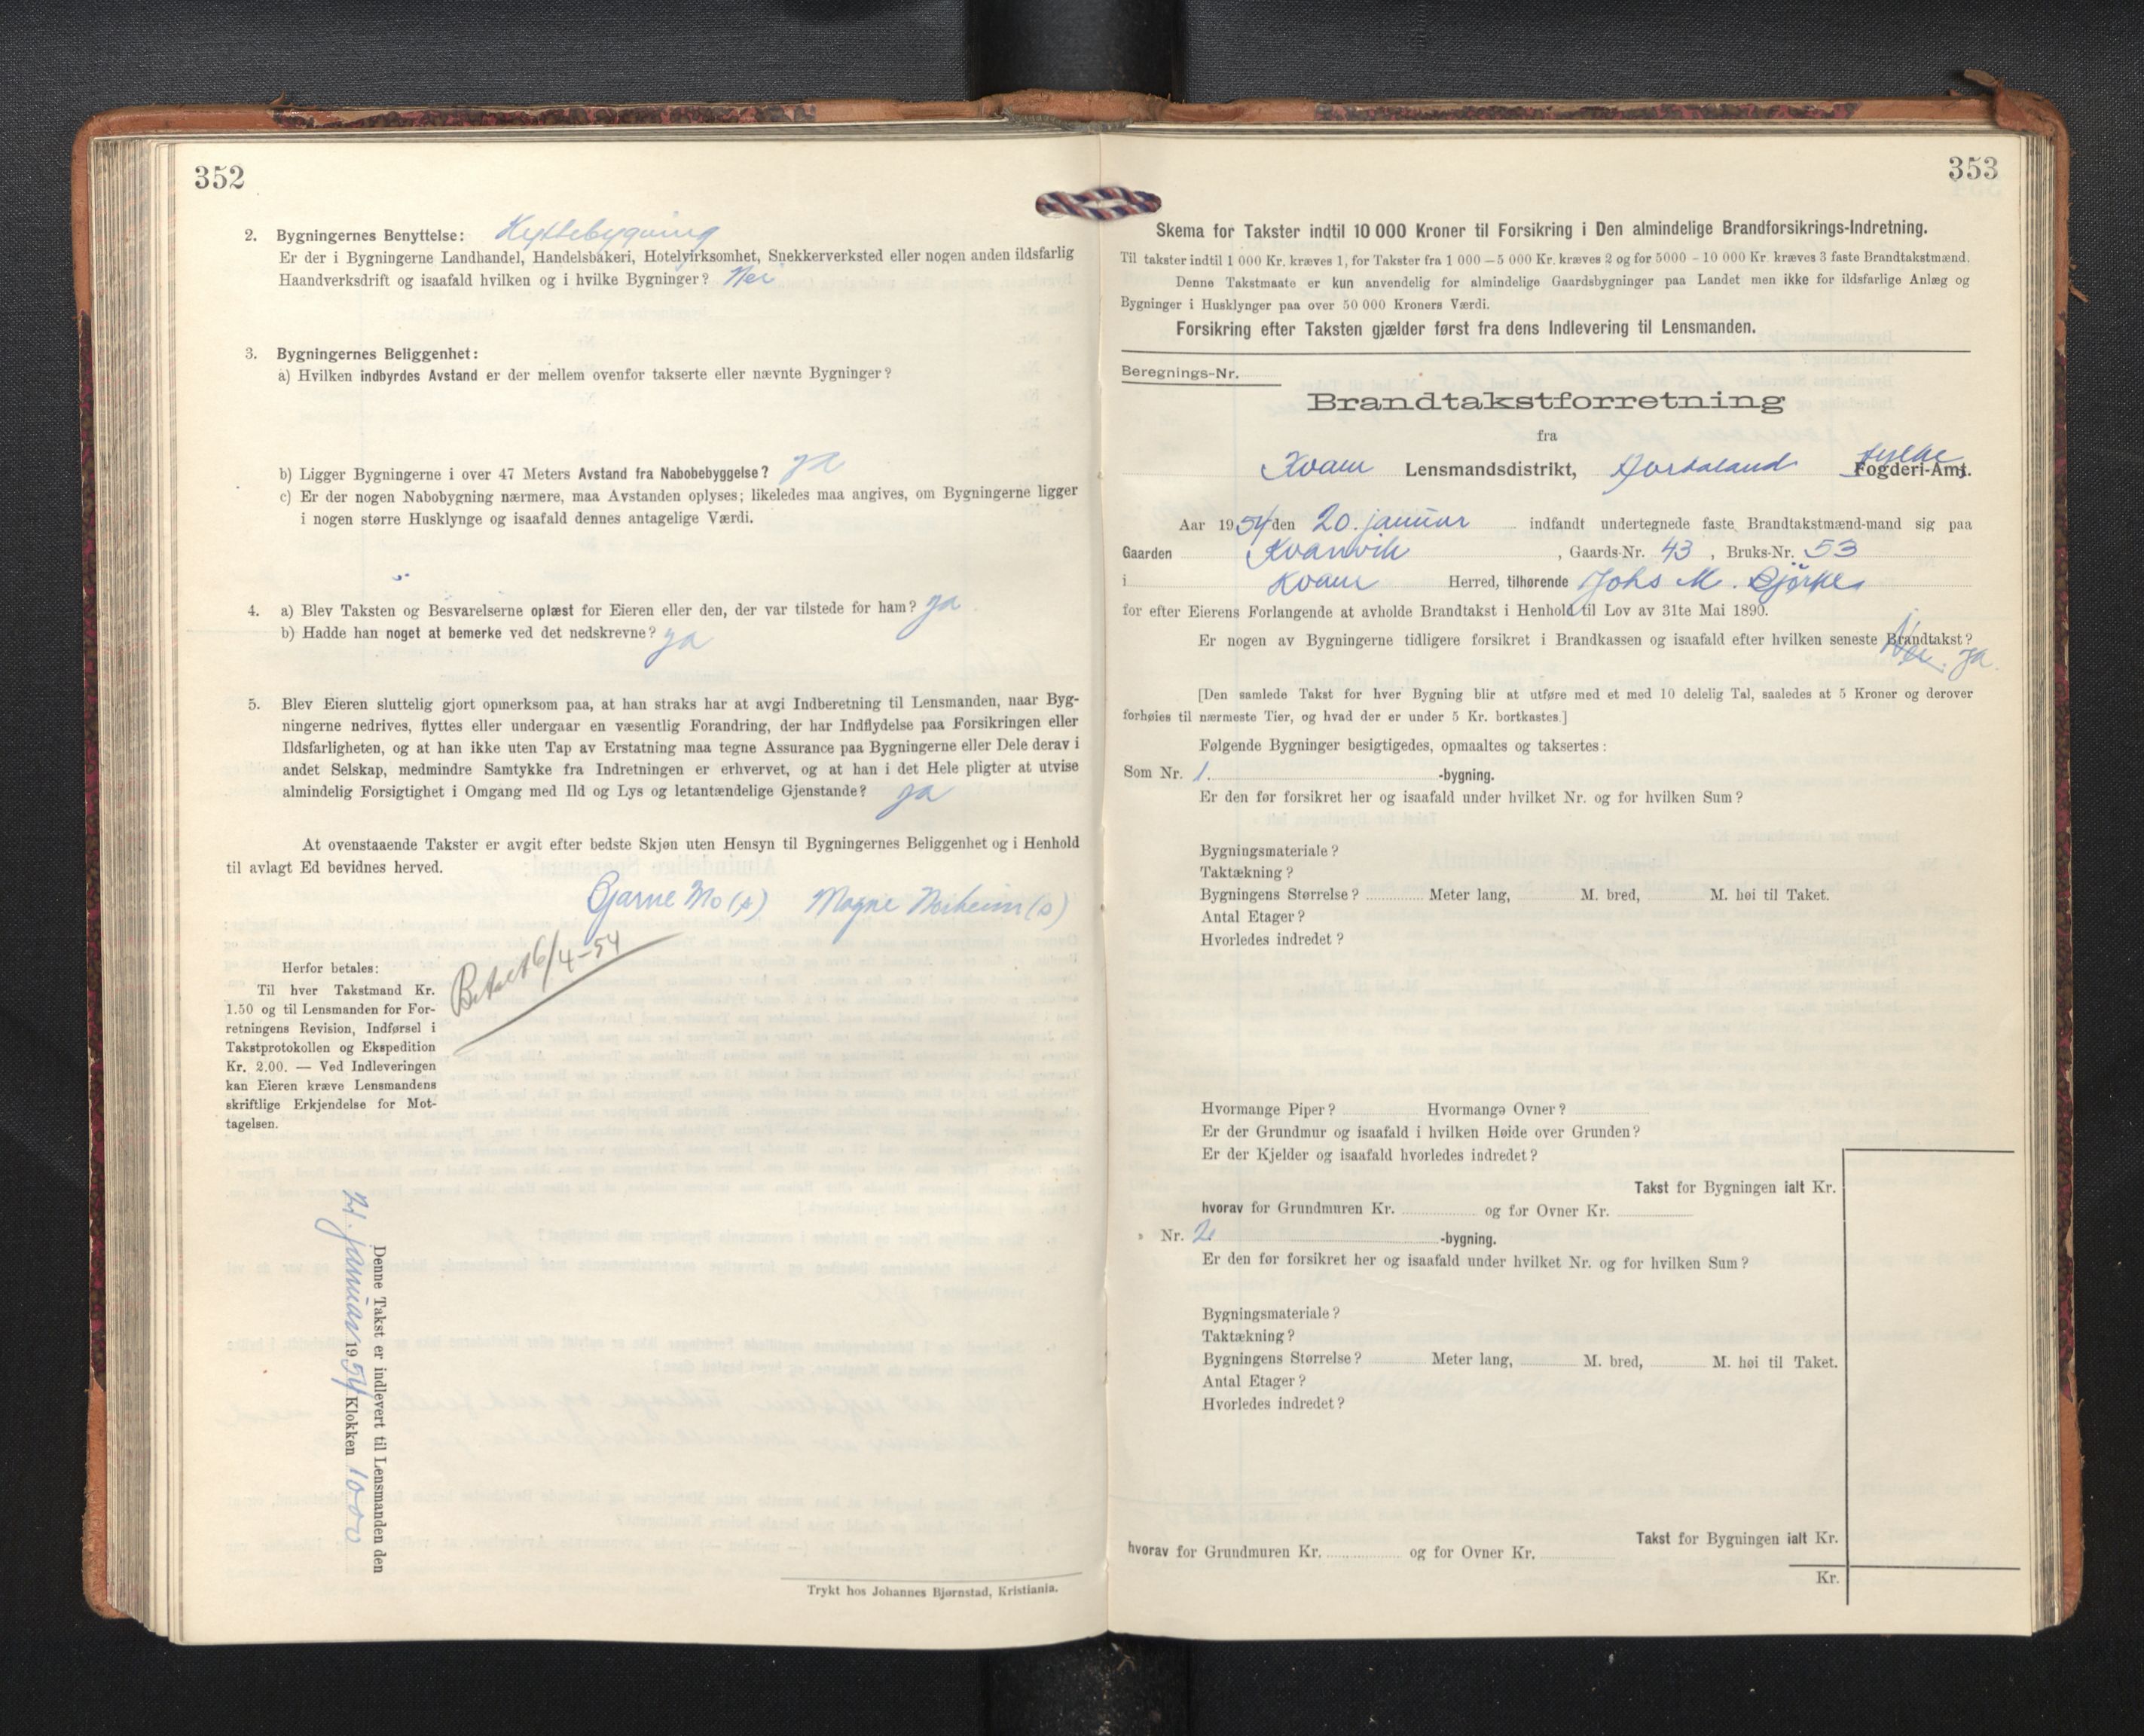 352
2. Bygningernes Benyttelse: Hyttebygning
Er der i Bygningerne Landhandel, Handelsbakeri, Hotelvirksomhet, Snekkerverksted eller nogen anden ildsfarlig
Haandverksdrift og isaafald hvilken og i hvilke Bygninger? Nei
3. Bygningernes Beliggenhet:
a) Hvilken indbyrdes Avstand er der mellem ovenfor takserte eller nævnte Bygninger?
b) Ligger Bygningerne i over 47 Meters Avstand fra Nabobebyggelse? ja
c) Er der nogen Nabobygning nærmere, maa Avstanden oplyses; likeledes maa angives, om Bygningerne ligger
i nogen større Husklynge og isaafald dennes antagelige Værdi.
4. a) Blev Taksten og Besvarelserne oplæst for Eieren eller den, der var tilstede for ham? ja
b) Hadde han noget at bemerke ved det nedskrevne? ja
5. Blev Eieren sluttelig gjort opmerksom paa, at han straks har at avgi Indberetning til Lensmanden, naar Byg-
ningerne nedrives, flyttes eller undergaar en væsentlig Forandring, der har Indflydelse paa Forsikringen eller
Ildsfarligheten, og at han ikke uten Tap av Erstatning maa tegne Assurance paa Bygningerne eller Dele derav i
andet Selskap, medmindre Samtykke fra Indretningen er erhvervet, og at han i det Hele pligter at utvise
almindelig Forsigtighet i Omgang med Ild og Lys og letantændelige Gjenstande? ja
At ovenstaaende Takster er avgit efter bedste Skjøn uten Hensyn til Bygningernes Beliggenhet og i Henhold
til avlagt Ed bevidnes herved.
Bjarne Mo (s) Magne Norheim (s)
Betalt 6/4-54
Herfor betales:
Til hver Takstmand Kr.
1.50 og til Lensmanden for For-
retningens Revision, Indførsel i
Takstprotokollen og Ekspedition
Kr. 2.00. — Ved Indleveringen
kan Eieren kræve Lensmandens
skriftlige Erkjendelse for Mot-
tagelsen.
Denne Takst er indlevert til Lensmanden den
21. januar 1954 Klokken 1000
Trykt hos Johannes Bjørnstad, Kristiania.
353
Skema for Takster indtil 10 000 Kroner til Forsikring i Den almindelige Brandforsikrings-Indretning.
Til takster indtil 1 000 Kr. kræves 1, for Takster fra 1 000 – 5 000 Kr. kræves 2 og for 5000 – 10 000 Kr. kræves 3 faste Brandtakstmænd.
Denne Takstmaate er kun anvendelig for almindelige Gaardsbygninger paa Landet men ikke for ildsfarlige Anlæg og
Bygninger i Husklynger paa over 50 000 Kroners Værdi.
Forsikring efter Taksten gjælder først fra dens Indlevering til Lensmanden.
Beregnings-Nr.
Brandtakstforretning
fra
Kvam Lensmandsdistrikt, Hordaland fylke Fogderi-Amt.
Aar 1954 den 20. januar indfandt undertegnede faste Brandtakstmænd-mand sig paa
Gaarden Kvanvik, Gaards-Nr. 43, Bruks-Nr. 53
i Kvam Herred, tilhørende Johs M. Björke
for efter Eierens Forlangende at avholde Brandtakst i Henhold til Lov av 31te Mai 1890.
Er nogen av Bygningerne tidligere forsikret i Brandkassen og isaafald efter hvilken seneste Brandtakst? Nei. ja.
[Den samlede Takst for hver Bygning blir at utføre med et med 10 delelig Tal, saaledes at 5 Kroner og derover
forhøies til nærmeste Tier, og hvad der er under 5 Kr. bortkastes]
Følgende Bygninger besigtigedes, opmaaltes og taksertes:
Som Nr. 1. -bygning.
Er den før forsikret her og isaafald under hvilket Nr. og for hvilken Sum?
Bygningsmateriale?
Taktækning?
Bygningens Størrelse? Meter lang, M. bred, M. høi til Taket.
Antal Etager?
Hvorledes indredet?
Hvormange Piper? Hvormange Ovner?
Er der Grundmur og isaafald i hvilken Høide over Grunden?
Er der Kjelder og isaafald hvorledes indredet?
Takst for Bygningen ialt Kr.
hvorav for Grundmuren Kr. og for Ovner Kr.
» Nr. 2. -bygning.
Er den før forsikret her og isaafald under hvilket Nr. og for hvilken Sum?
Bygningsmateriale?
Taktækning?
Bygningens Størrelse? Meter lang, M. bred, M. høi til Taket.
Antal Etager?
Hvorledes indredet?
Takst for Bygningen ialt Kr.
hvorav for Grundmuren Kr. og for Ovner Kr.
Kr.